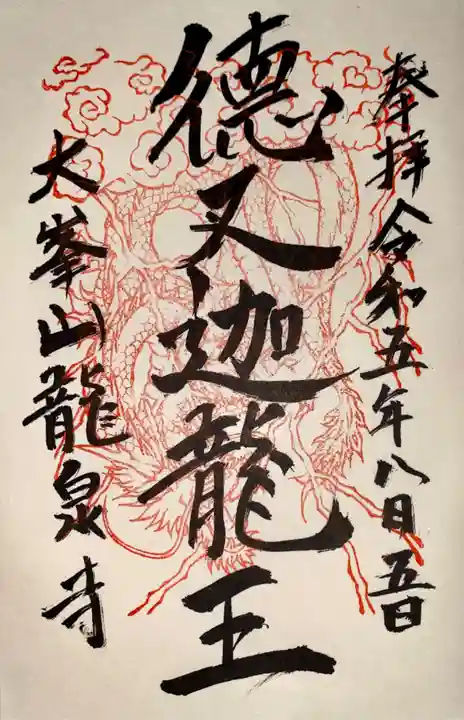 奉拝令和五年八月五日
徳叉迦龍王
大峯山龍泉寺